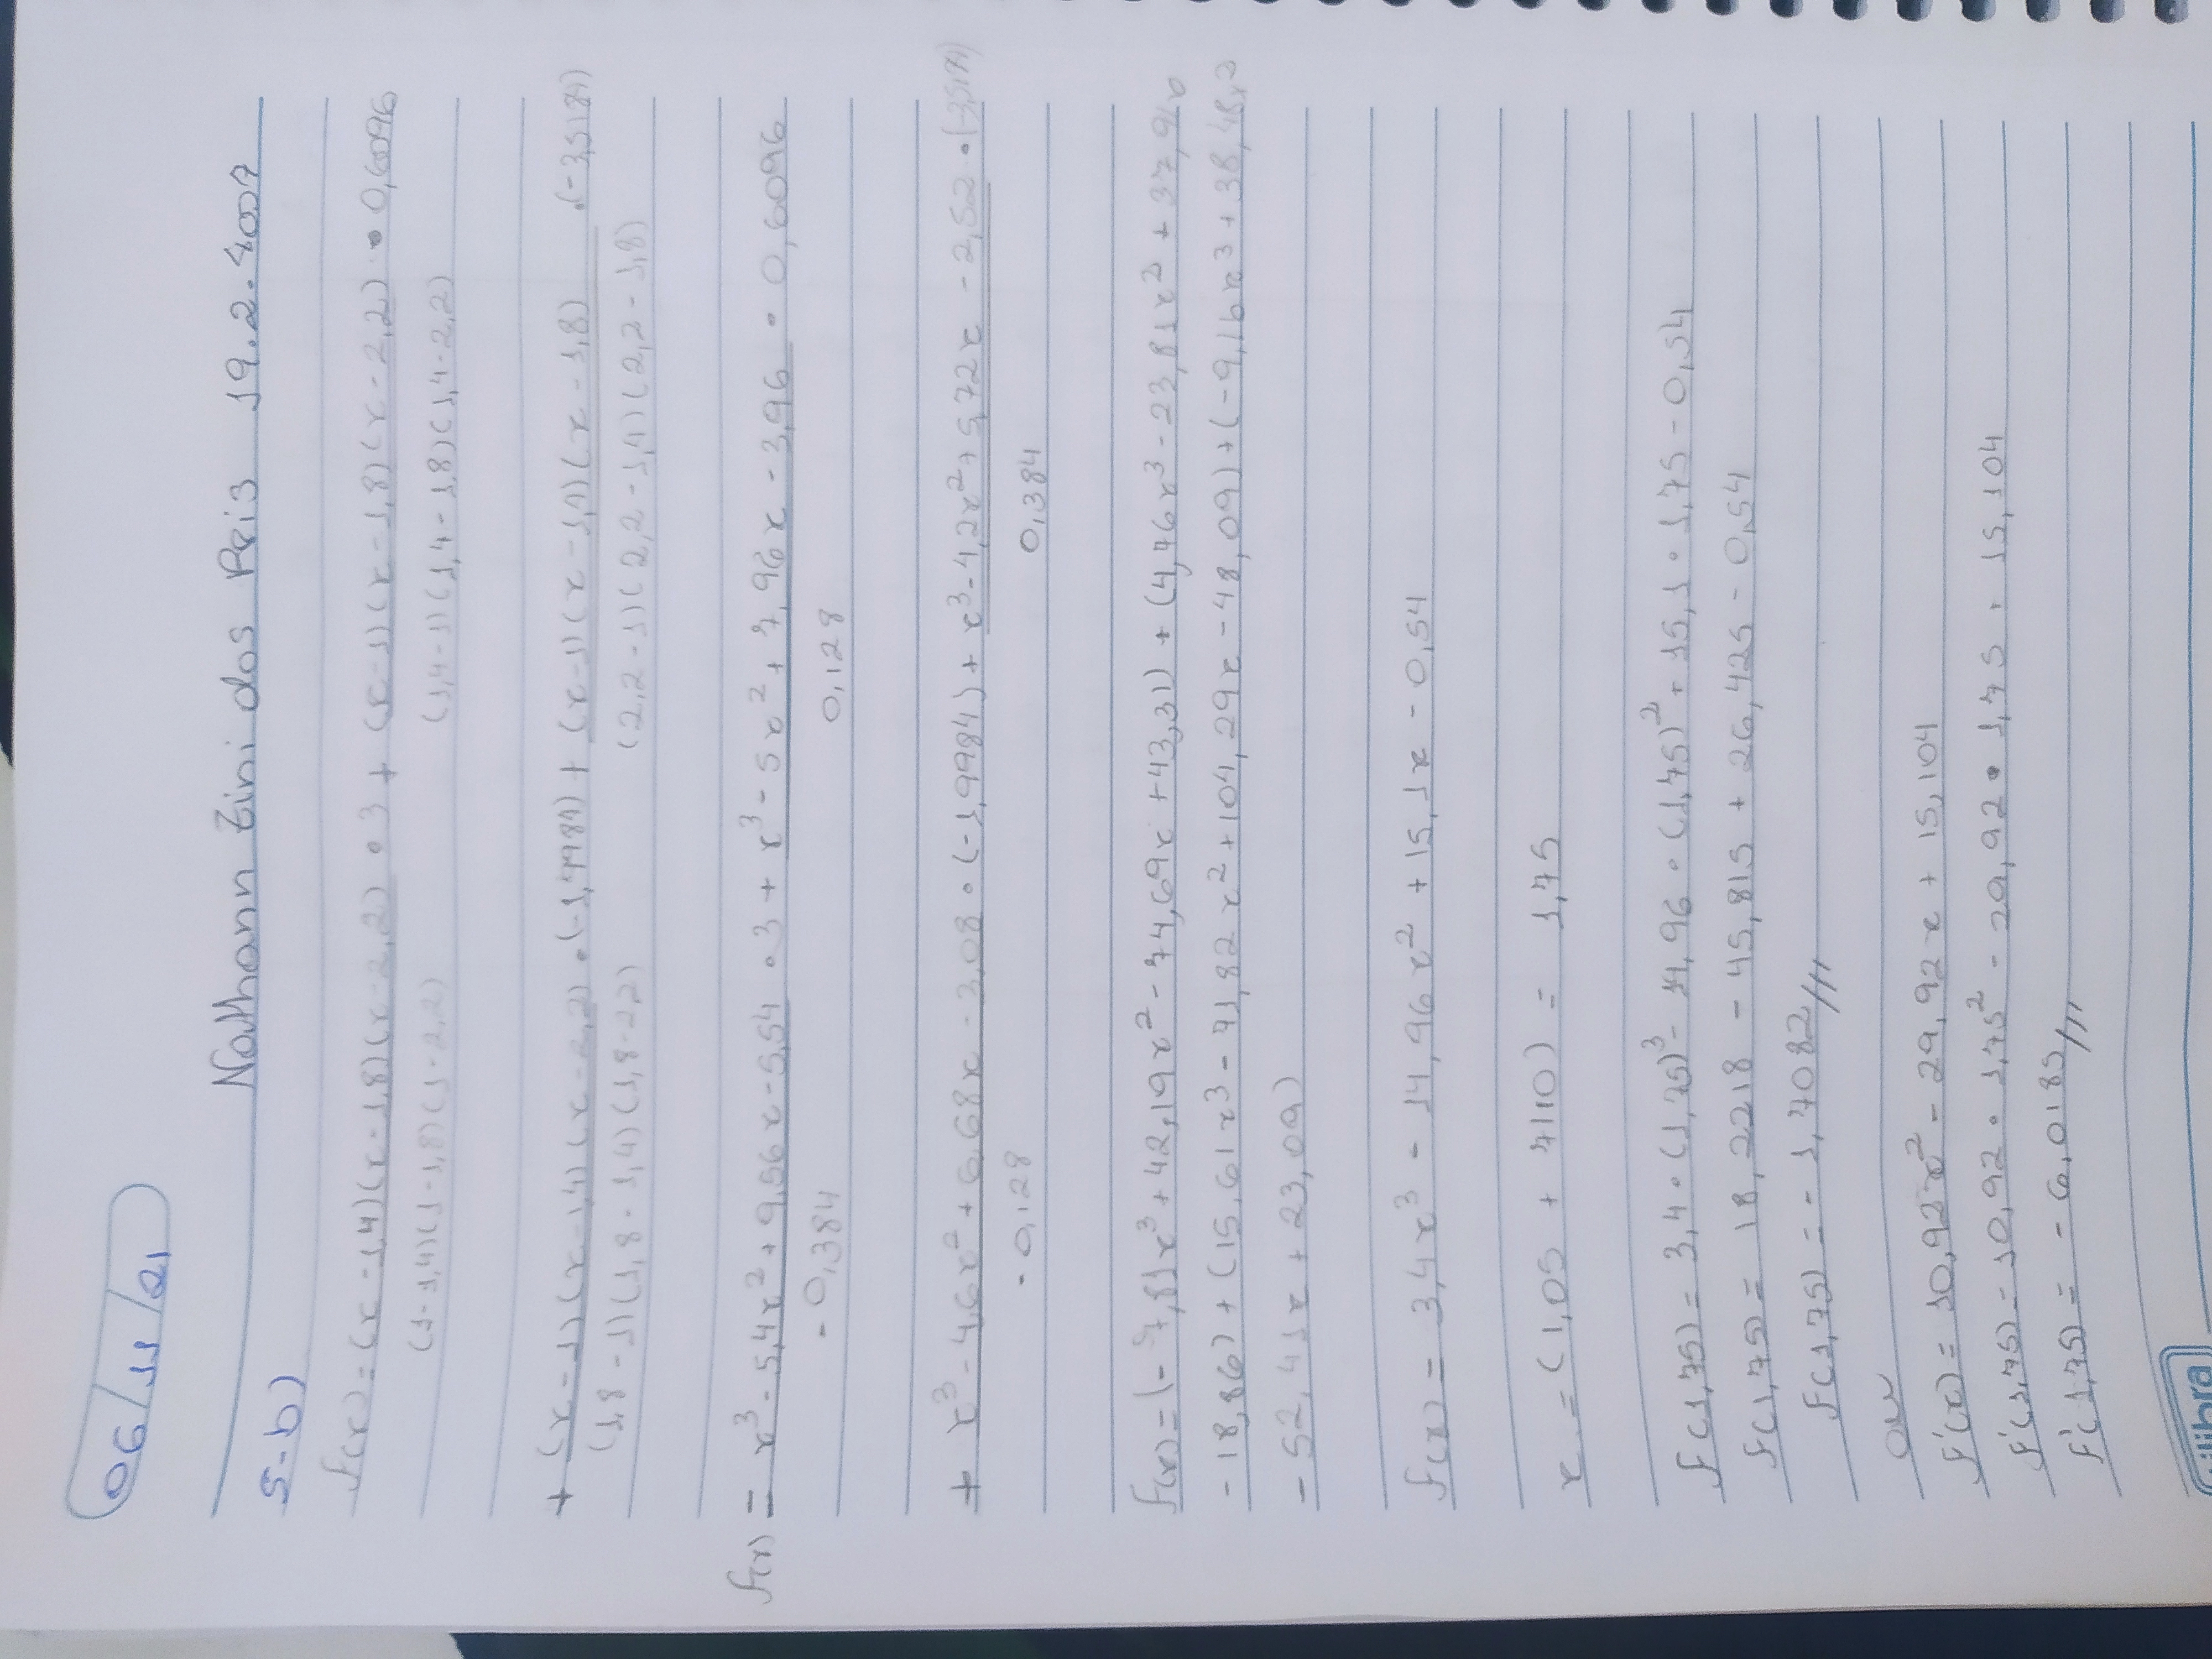 06/11/21
Nathann Zini dos Reis 19.2.4007
5-b)
f(x) = (x-1,4)(x-1,8)(x-2,2) • 3 + (x-1)(x-1,8)(x-2,2) • 0,6096
(1-1,4)(1-1,8)(1-2,2) (1,4-1)(1,4-1,8)(1,4-2,2)
+ (x-1)(x-1,4)(x-2,2) • (-1,9984) + (x-1)(x-1,4)(x-1,8) •(-3,5184)
(1,8-1)(1,8-1,4)(1,8-2,2) (2,2-1)(2,2-1,4)(2,2-1,8)
f(x) = x³-5,4x²+9,56x-5,54 • 3 + x³-5x²+7,96x-3,96 • 0,6096
-0,384 0,128
+ x³-4,6x²+6,68x-3,08 • (-1,9984) + x³-4,2x²+5,72x-2,52 • (-3,5184)
-0,128 0,384
f(x)=(-7,81x³+42,19x²-74,69x+43,31) + (4,76x³-23,81x²+37,91x
-18,86)+(15,61x³-71,82x²+104,29x-48,09)+(-9,16x³+38,48x²
-52,41x+23,09)
f(x) = 3,4x³ - 14,96x² + 15,1x - 0,54
x = (1,05 + 7/10) = 1,75
f(1,75) = 3,4•(1,75)³-14,96•(1,75)²+15,1•1,75-0,54
f(1,75) = 18,2218 - 45,815 + 26,425 - 0,54
f(1,75) = -1,7082///
ou
f'(x) = 10,92x² - 29,92x + 15,104
f'(1,75) = 10,92 • 1,75² - 29,92 • 1,75 + 15,104
f'(1,75) = -6,0185///
tilibra